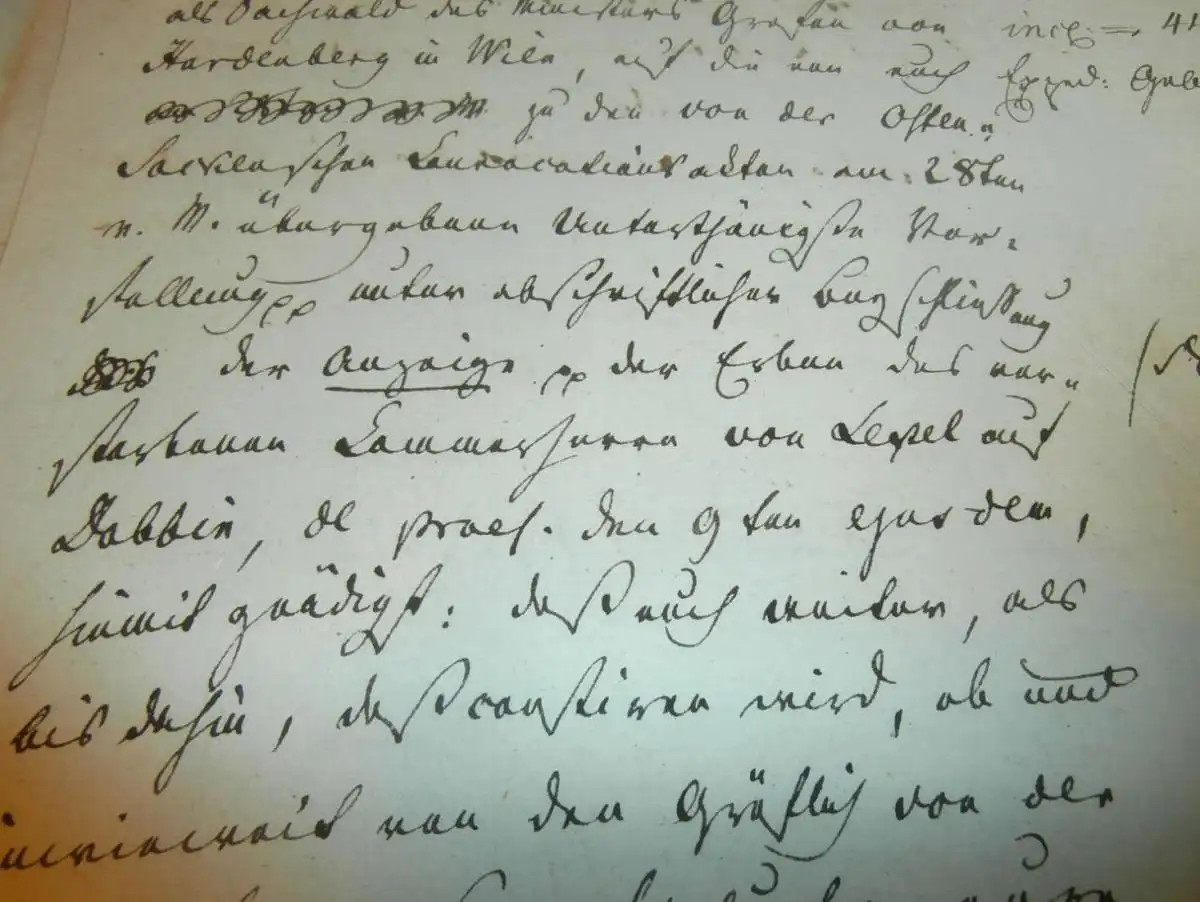 als Sachwald des Ministers Grafen von incl. 41
Hardenberg in Wien, auf die von euch Exped: Geb
zu den von der Osten-
Sackenschen Convocations akten am 28ten
v. M. übergebene Unterthänigste Vor-
stellung pp unter abschriftlicher Beyschließung
der Anzeige pp der Erben des ver-
storbenen Kammerherrn von Levzel auf
Dobbin, de praes. den 9ten ejusdem,
hiemit gnädigst: daß euch weiter, als
bis dahin, daß constiren wird, ob und
inwieweit von den Gräflich von der